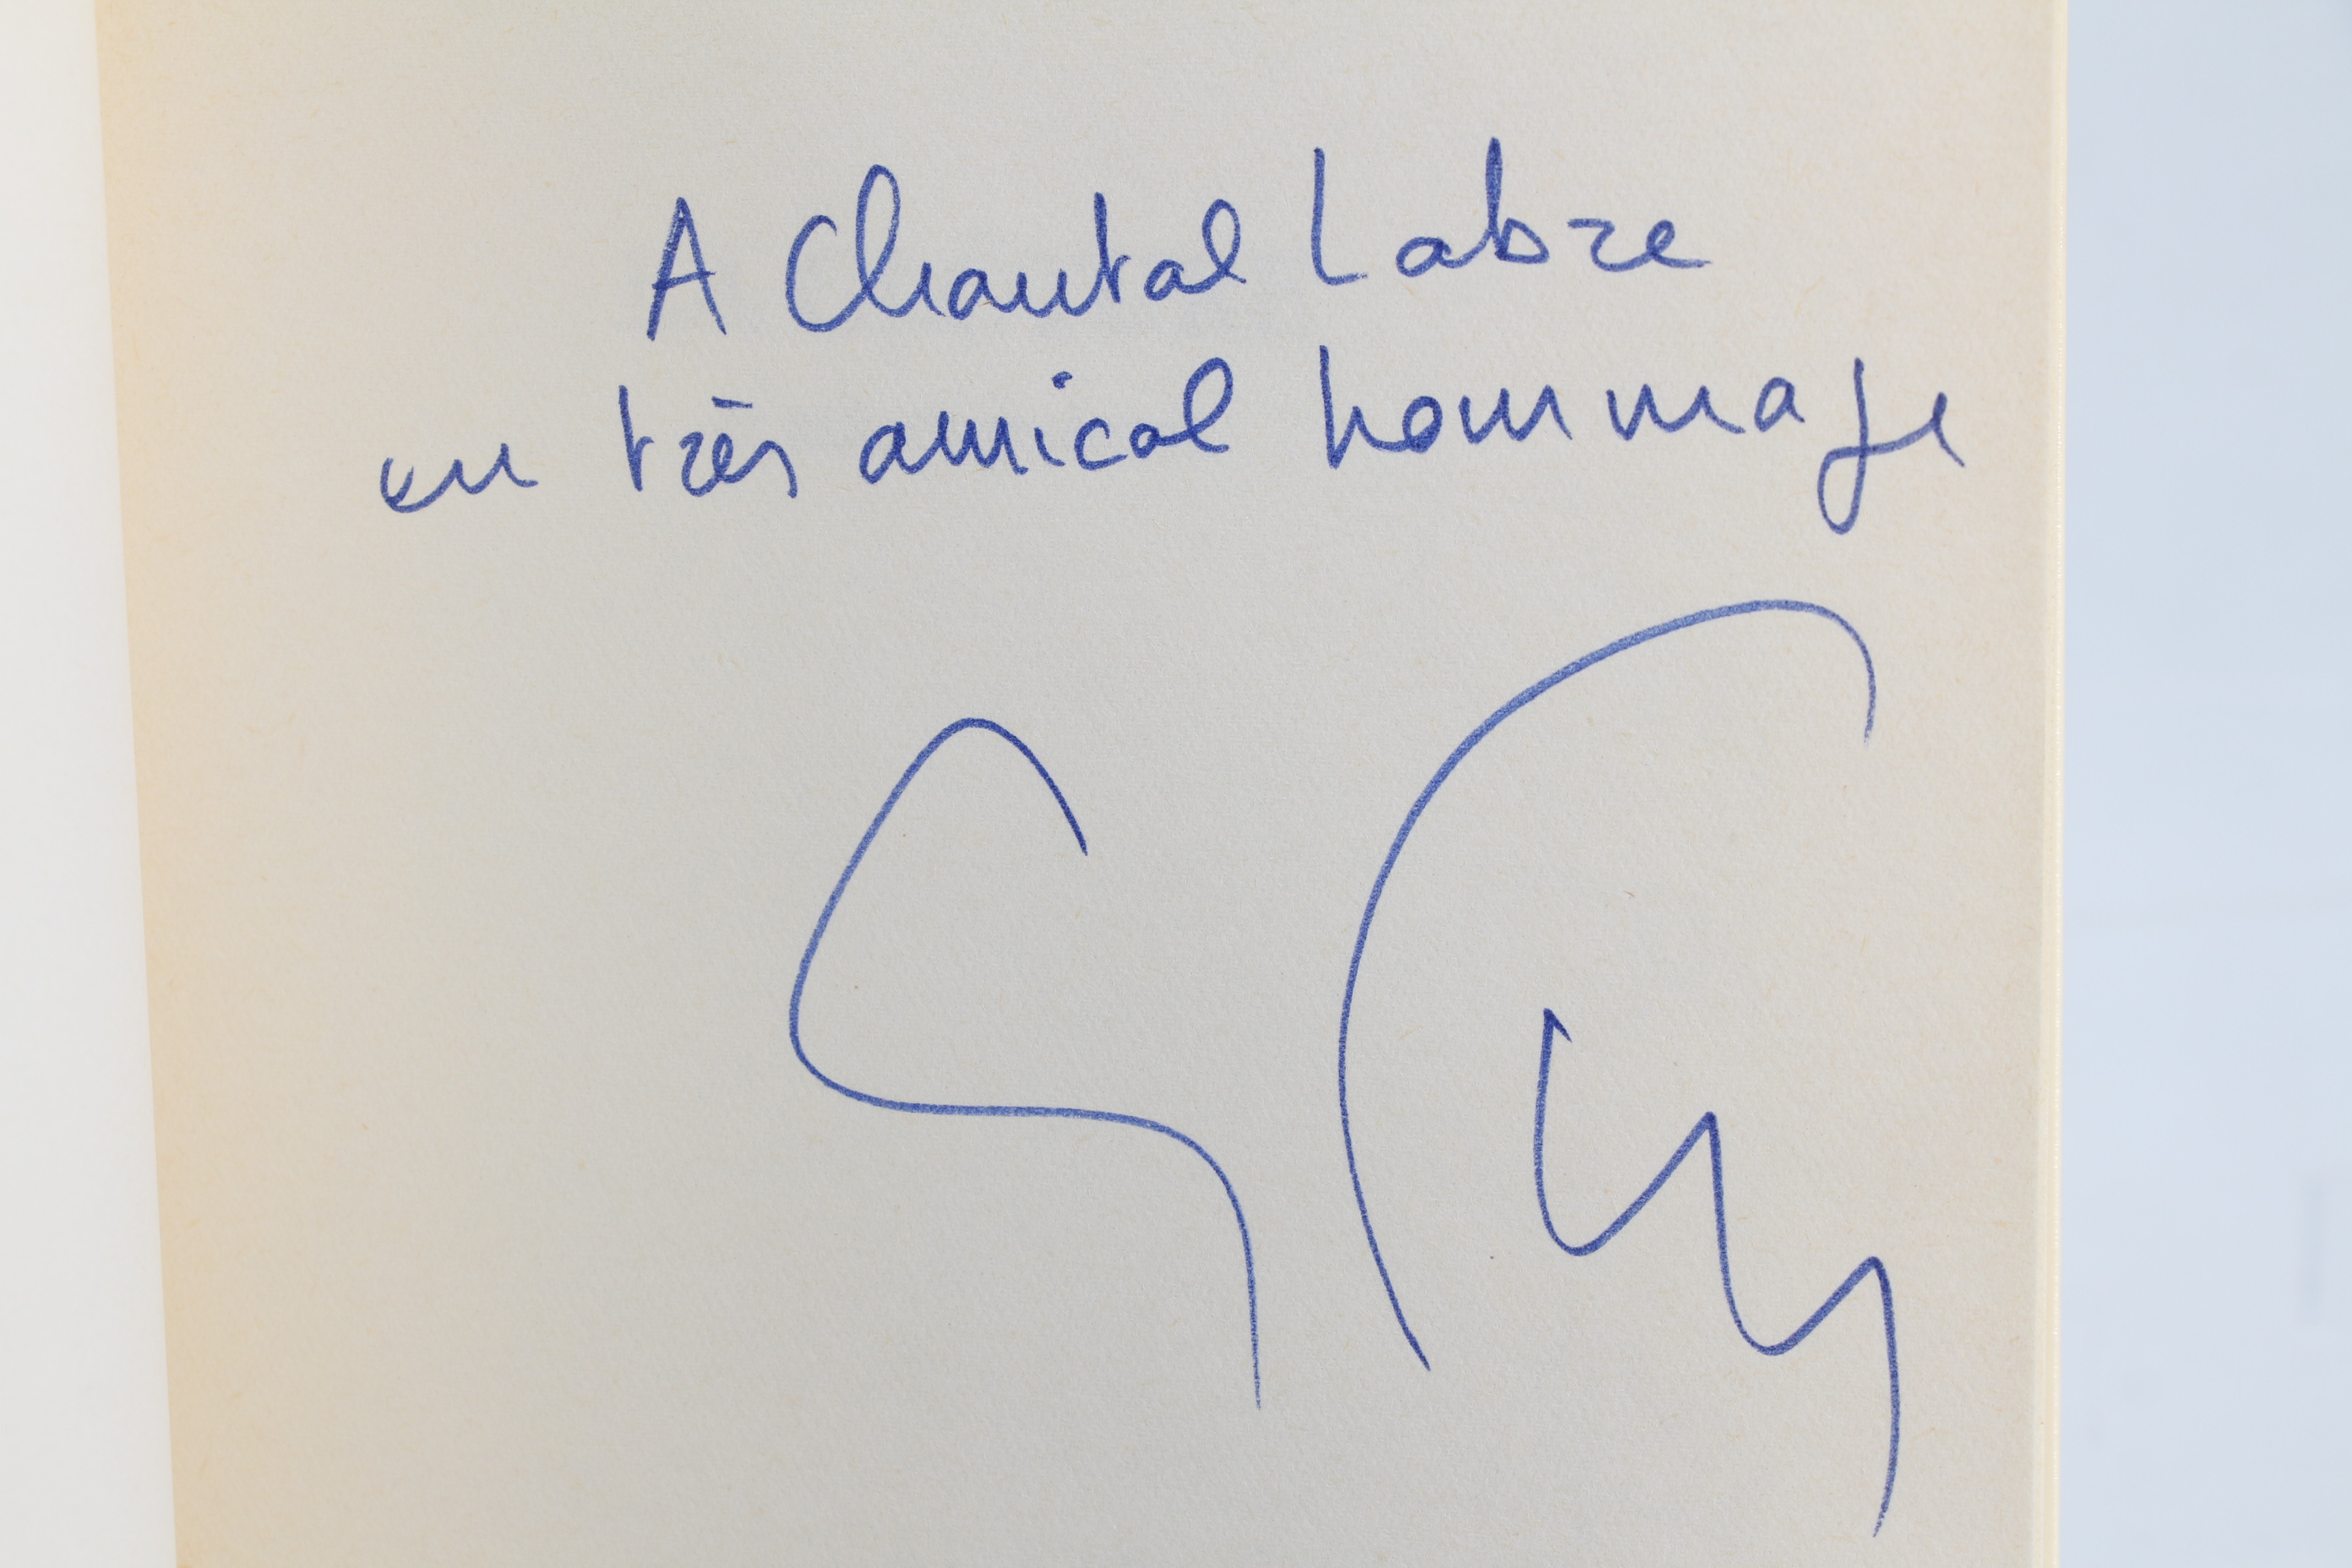 A Chantal Labre
en très amical hommage